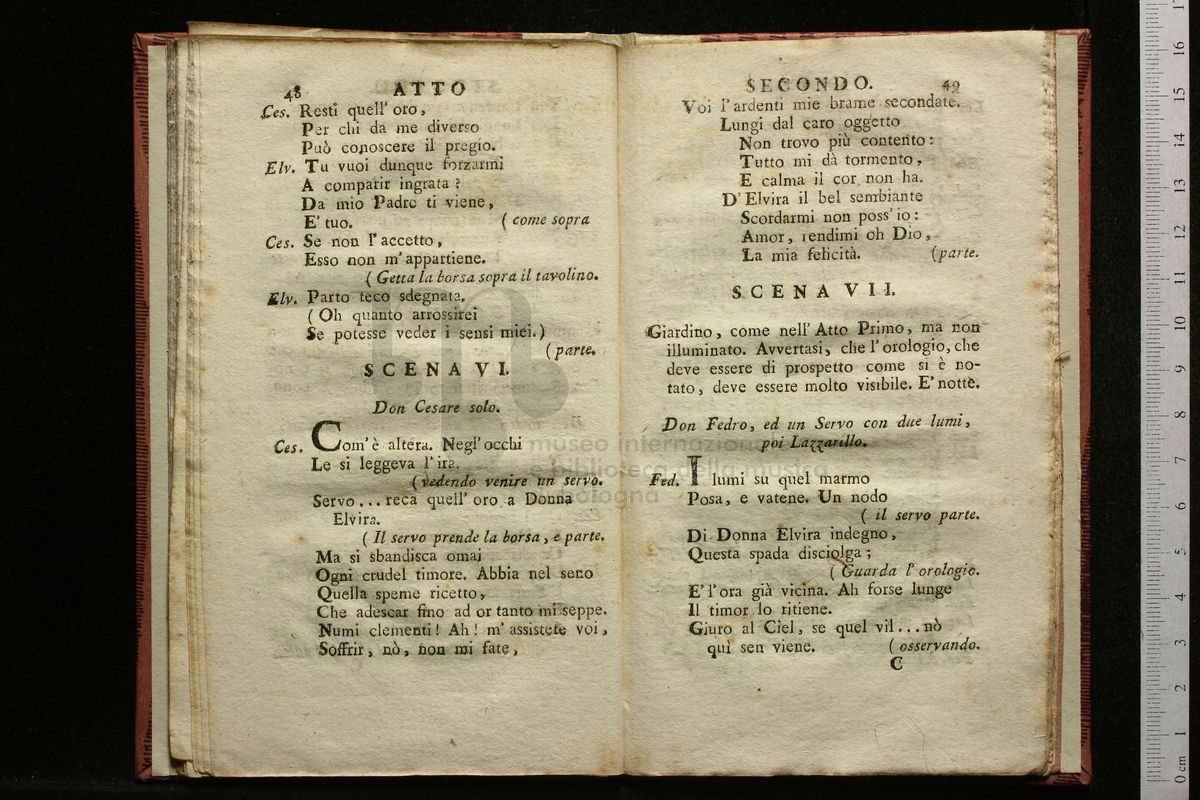 48 ATTO
Ces. Resti quell' oro,
Per chi da me diverso
Può conoscere il pregio.
Elv. Tu vuoi dunque forzarmi
A comparir ingrata?
Da mio Padre ti viene,
E' tuo. ( come sopra
Ces. Se non l'accetto,
Esso non m'appartiene.
( Getta la borsa sopra il tavolino.
Elv. Parto teco sdegnata.
( Oh quanto arrossirei
Se potesse veder i sensi miei.)
( parte.
SCENA VI.
Don Cesare solo.
Ces. Com'è altera. Negl'occhi
Le si leggeva l'ira.
( vedendo venire un servo.
Servo... reca quell' oro a Donna
Elvira.
( Il servo prende la borsa, e parte.
Ma si sbandisca omai
Ogni crudel timore. Abbia nel seno
Quella speme ricetto,
Che adescar fino ad or tanto mi seppe.
Numi clementi! Ah! m'assistete voi,
Soffrir, nò, non mi fate,
SECONDO. 49
Voi l'ardenti mie brame secondate.
Lungi dal caro oggetto
Non trovo più contento:
Tutto mi dà tormento,
E calma il cor non ha.
D'Elvira il bel sembiante
Scordarmi non poss'io:
Amor, rendimi oh Dio,
La mia felicità. (parte.
SCENA VII.
Giardino, come nell'Atto Primo, ma non
illuminato. Avvertasi, che l'orologio, che
deve essere di prospetto come si è no-
tato, deve essere molto visibile. E' notte.
Don Fedro, ed un Servo con due lumi,
poi Lazzarillo.
Fed. I lumi su quel marmo
Posa, e vatene. Un nodo
( il servo parte.
Di Donna Elvira indegno,
Questa spada disciolga;
( Guarda l'orologio.
E' l'ora già vicina. Ah forse lunge
Il timor lo ritiene.
Giuro al Ciel, se quel vil...nò
quì sen viene. ( osservando.
C
museo internazionale
e biblioteca della musica
bologna
0 cm 1 2 3 4 5 6 7 8 9 10 11 12 13 14 15 16 17